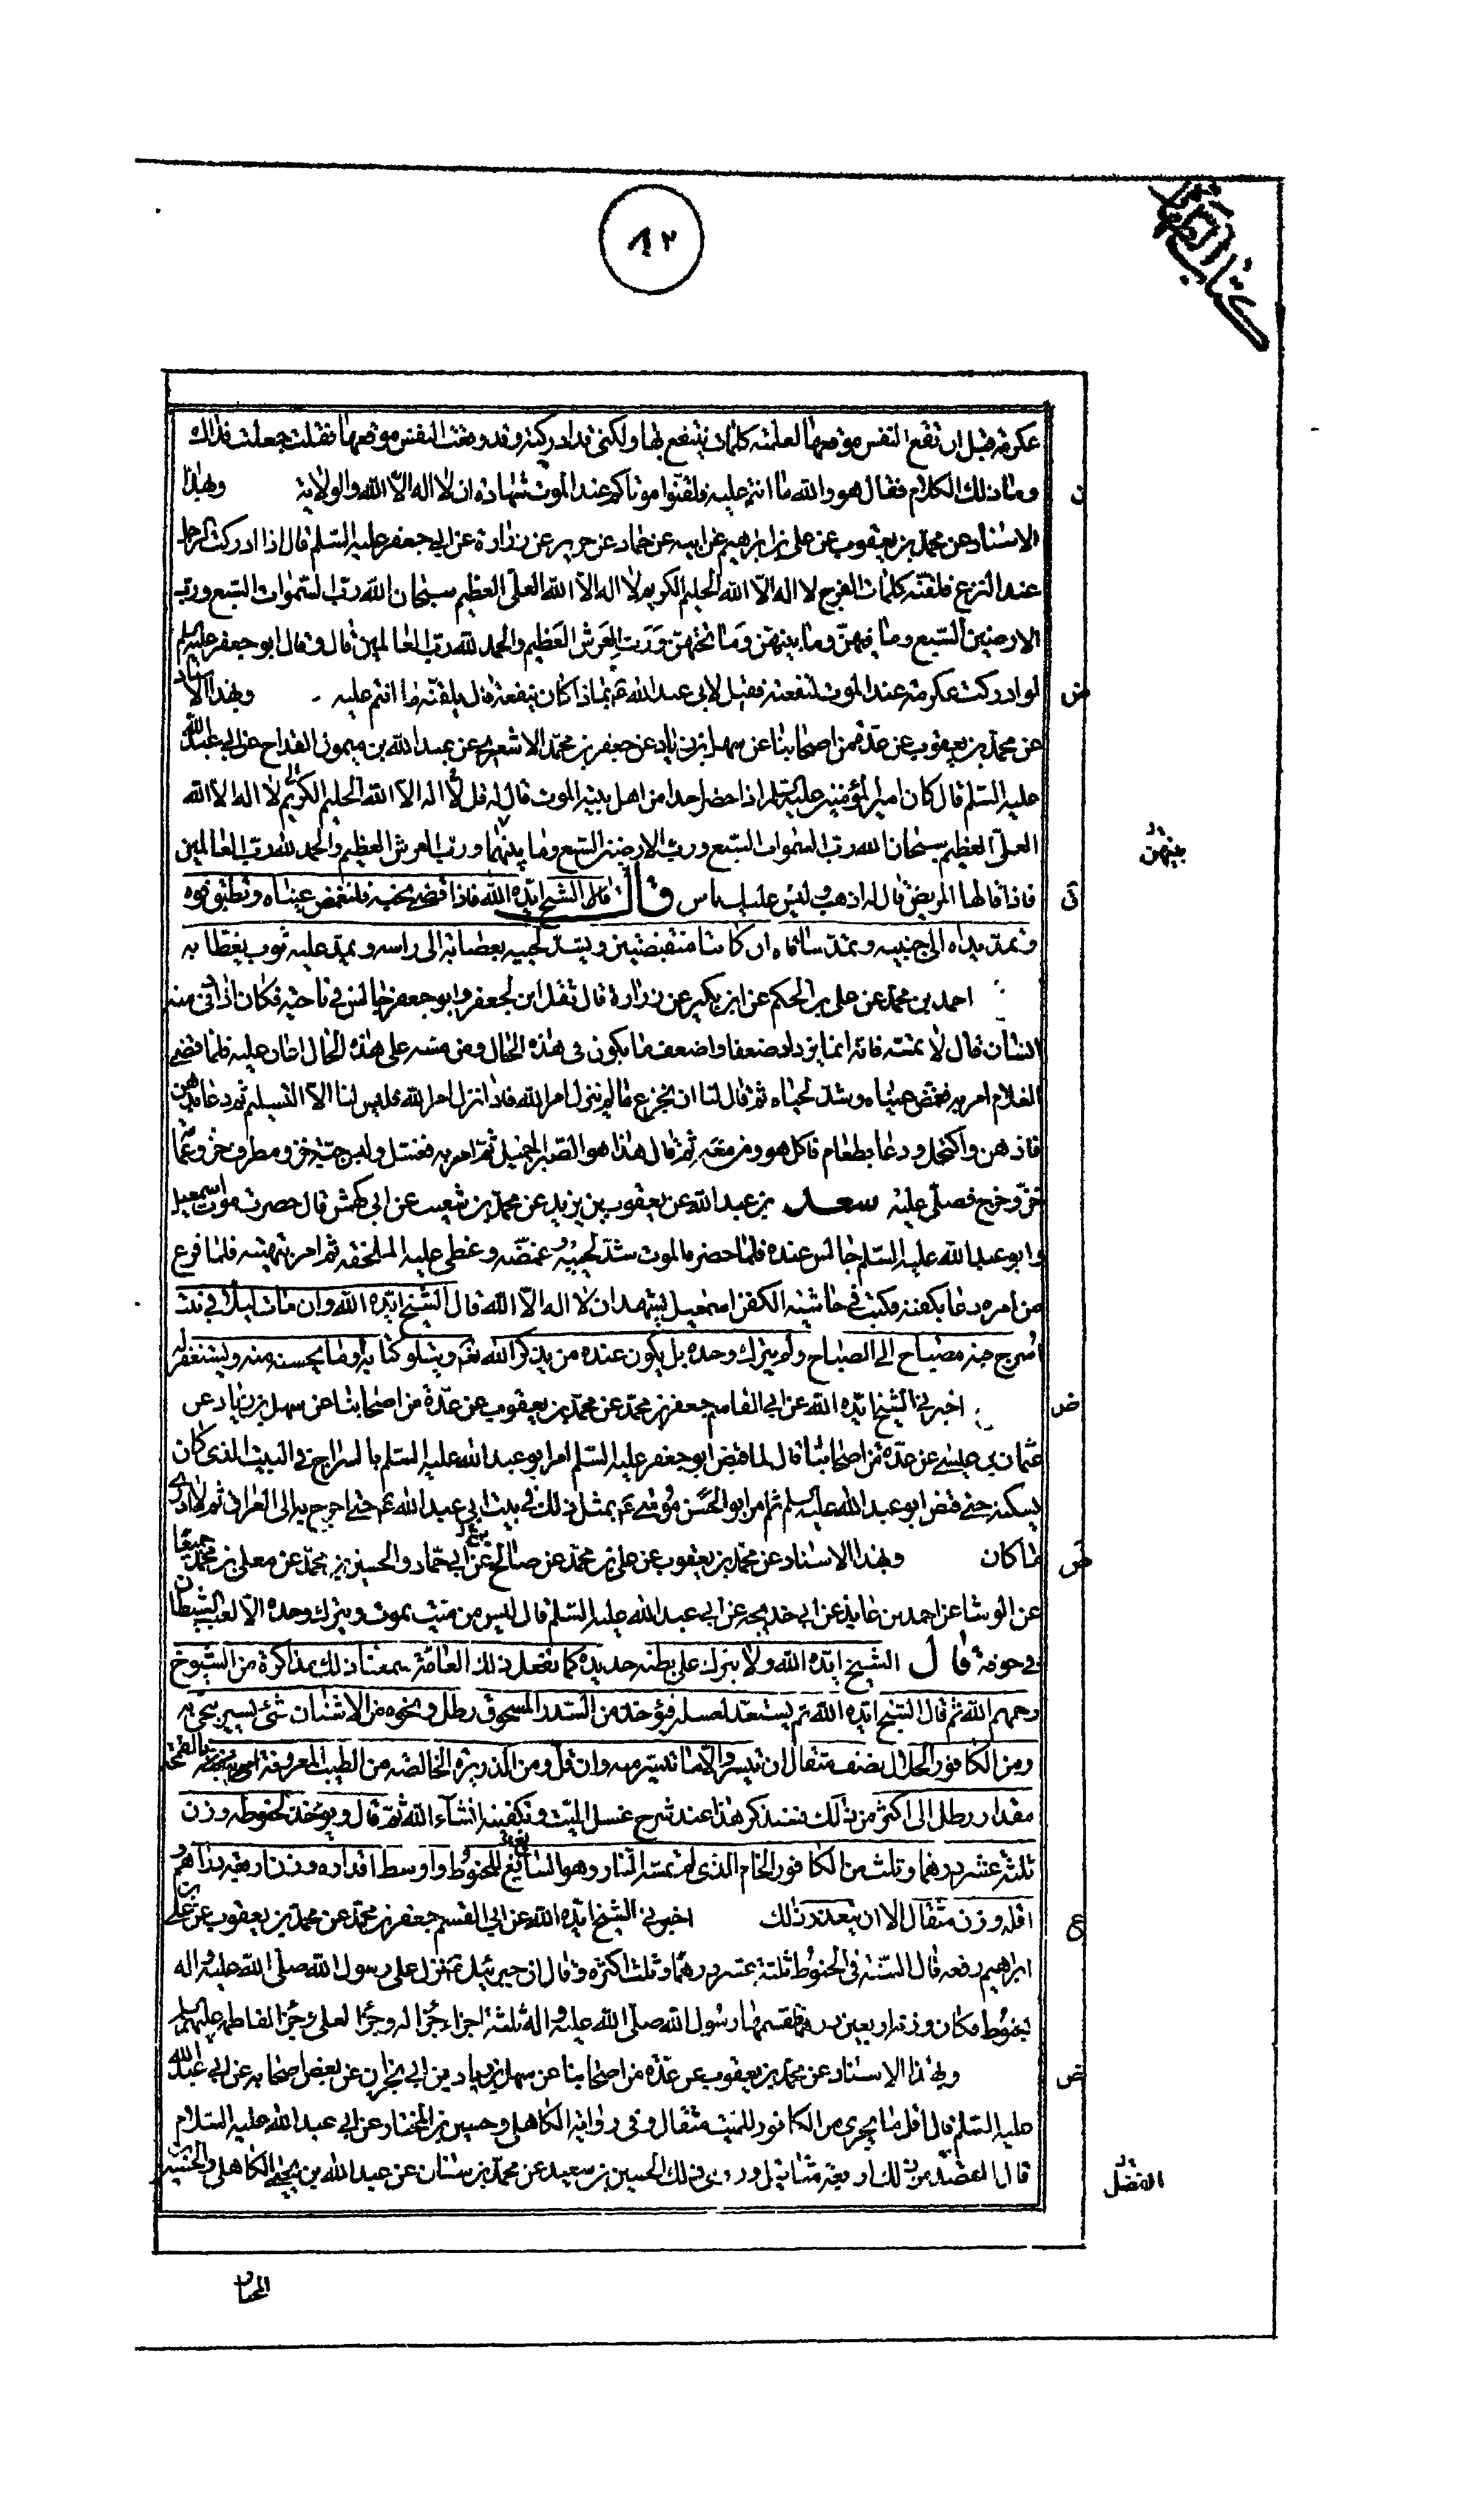 كتاب الطهارة
٨٢
عكرمة قبل ان تقع النفس موقعها لعلمته كلمات ينتفع بها ولكني قد ادركته وقد وقعت النفس موقعها فقلت جعلت فداك
وما ذلك الكلام فقال هو والله ما انتم عليه فلقنوا موتاكم عند الموت شهادة ان لا اله الا الله والولاية وبهذا
ن
الاسناد عن محمد بن يعقوب عن علي بن ابرهيم عن ابيه عن حماد عن حريز عن زرارة عن ابي جعفر عليه السلم قال اذا ادركت الرجل
عند النزع فلقنه كلمات الفرج لا اله الا الله الحليم الكريم لا اله الا الله العلي العظيم سبحان الله رب السموات السبع ورب
الارضين السبع وما فيهن وما بينهن وما تحتهن ورب العرش العظيم والحمد لله رب العالمين قال وقال ابو جعفر عليه السلم
لو ادركت عكرمة عند الموت لنفعته فقيل لابي عبد الله ع بماذا كان ينفعه قال يلقنه ما انتم عليه وبهذا الاسناد
ض
عن محمد بن يعقوب عن عدة من اصحابنا عن سهل بن زياد عن جعفر بن محمد الاشعري عن عبد الله بن ميمون القداح عن ابي عبد الله
عليه السلم قال كان امير المؤمنين عليه السلم اذا حضر احدا من اهل بيته الموت قال له قل لا اله الا الله الحليم الكريم لا اله الا الله
العلي العظيم سبحان الله رب السموات السبع ورب الارضين السبع وما بينهما ورب العرش العظيم والحمد لله رب العالمين
بينهن
فاذا قالها المريض قال له اذهب ليس عليك باس قال قال الشيخ ايده الله فاذا قضى نحبه فلتغمض عيناه وتطبق فوه
ق
وتمد يداه الى جنبيه وتمد ساقاه ان كانتا منقبضتين ويشد لحييه بعصابة الى راسه ويمد عليه ثوب يغطا به
احمد بن محمد عن علي بن الحكم عن ابن بكير عن زرارة قال ثقل ابن لجعفر وابو جعفر جالس في ناحية فكان اذا دنى منه
انسان قال لا تمسه فانه انما يزداد ضعفا واضعف ما يكون في هذه الحال ومن مسه على هذه الحال اعان عليه فلما قضى
الغلام امر به فغمض عيناه وشد لحياه ثم قال لنا ان نجزع ما لم ينزل امر الله فاذا نزل امر الله فليس لنا الا التسليم ثم دعا بدهن
فادهن واكتحل ودعا بطعام فاكل هو ومن معه ثم قال هذا هو الصبر الجميل ثم امر به فغسل ولبس جبة خز ومطرف خز وعمامة
خز وخرج فصلى عليه سعد بن عبد الله عن يعقوب بن يزيد عن محمد بن شعيب عن ابي كهمش قال حضرت موت اسمعيل
وابو عبد الله عليه السلم جالس عنده فلما حضره الموت شد لحييه وغمضه وغطى عليه الملحفة ثم امر بتهيئته فلما فرغ
من امره دعا بكفنه فكتب في حاشية الكفن اسمعيل يشهد ان لا اله الا الله قال الشيخ ايده الله وان مات ليلا في بيت
اسرج فيه مصباح الى الصباح ولم يترك وحده بل يكون عنده من يذكر الله نعم ويتلو كتابه او ما يحسنه منه ويستغفر له
اخبرني الشيخ ايده الله عن ابي القاسم جعفر بن محمد عن محمد بن يعقوب عن عدة من اصحابنا عن سهل بن زياد عن
ض
عثمان بن عيسى عن عدة من اصحابنا قال لما قبض ابو جعفر عليه السلم امر ابو عبد الله عليه السلم بالسراج في البيت الذي كان
يسكنه حتى قبض ابو عبد الله عليه السلم ثم امر ابو الحسن موسى ع بمثل ذلك في بيت ابي عبد الله ع حتى اخرج به الى العراق ثم لا ادري
ما كان وبهذا الاسناد عن محمد بن يعقوب عن علي بن محمد عن صالح عن ابي حماد والحسين بن محمد عن معلى بن محمد جميعا
ض
عن الوشا عن احمد بن عايذ عن ابي خديجه عن ابي عبد الله عليه السلم قال ليس من ميت يموت ويترك وحده الا لعب الشيطان
في جوفه قال الشيخ ايده الله ولا يترك على بطنه حديدة كما تفعل ذلك العامة سمعنا ذلك مذاكرة من الشيوخ
رحمهم الله ثم قال الشيخ ايده الله ثم يستعد لغسله فيؤخذ من السدر المسحوق رطل ونحوه من الاشنان شئ يسير
ومن الكافور الجلال نصف مثقال ان تيسر والا ما تيسر منه وان قل ومن الذريرة الخالصة من الطيب المعروفة بالقمحة
مقدار رطل الى اكثر من ذلك سنذكر هذا عند شرح غسل الميت وتكفينه انشاء الله ثم قال ويؤخذ لحنوطه وزن
ثلثة عشر درهما وثلث من الكافور الخام الذي لم تمسه النار وهو السايغ للحنوط واوسط اقداره وزن اربعة دراهم
اقله وزن مثقال الا ان يتعذر ذلك اخبرني الشيخ ايده الله عن ابي القسم جعفر بن محمد عن محمد بن يعقوب عن علي بن
ع
ابراهيم رفعه قال السنة في الحنوط ثلثة عشر درهما وثلث اكثره وقال ان جبرئيل ع نزل على رسول الله صلى الله عليه واله
بحنوط فكان وزنه اربعين درهما فقسمها رسول الله صلى الله عليه واله ثلثة اجزاء جزا له وجزا لعلي وجزا لفاطمه عليهم السلم
وبهذا الاسناد عن محمد بن يعقوب عن عدة من اصحابنا عن سهل بن زياد عن ابي نجران عن بعض اصحابه عن ابي عبد الله
ض
عليه السلم قال اقل ما يجزى من الكافور للميت مثقال وفى رواية الكاهلي وحسين بن المختار عن ابي عبد الله عليه السلام
قال القصد من ذلك اربعة مثاقيل وروى ذلك الحسين بن سعيد عن محمد بن سنان عن عبد الله بن يحيى الكاهلي والحسين بن
الفضل
المختار